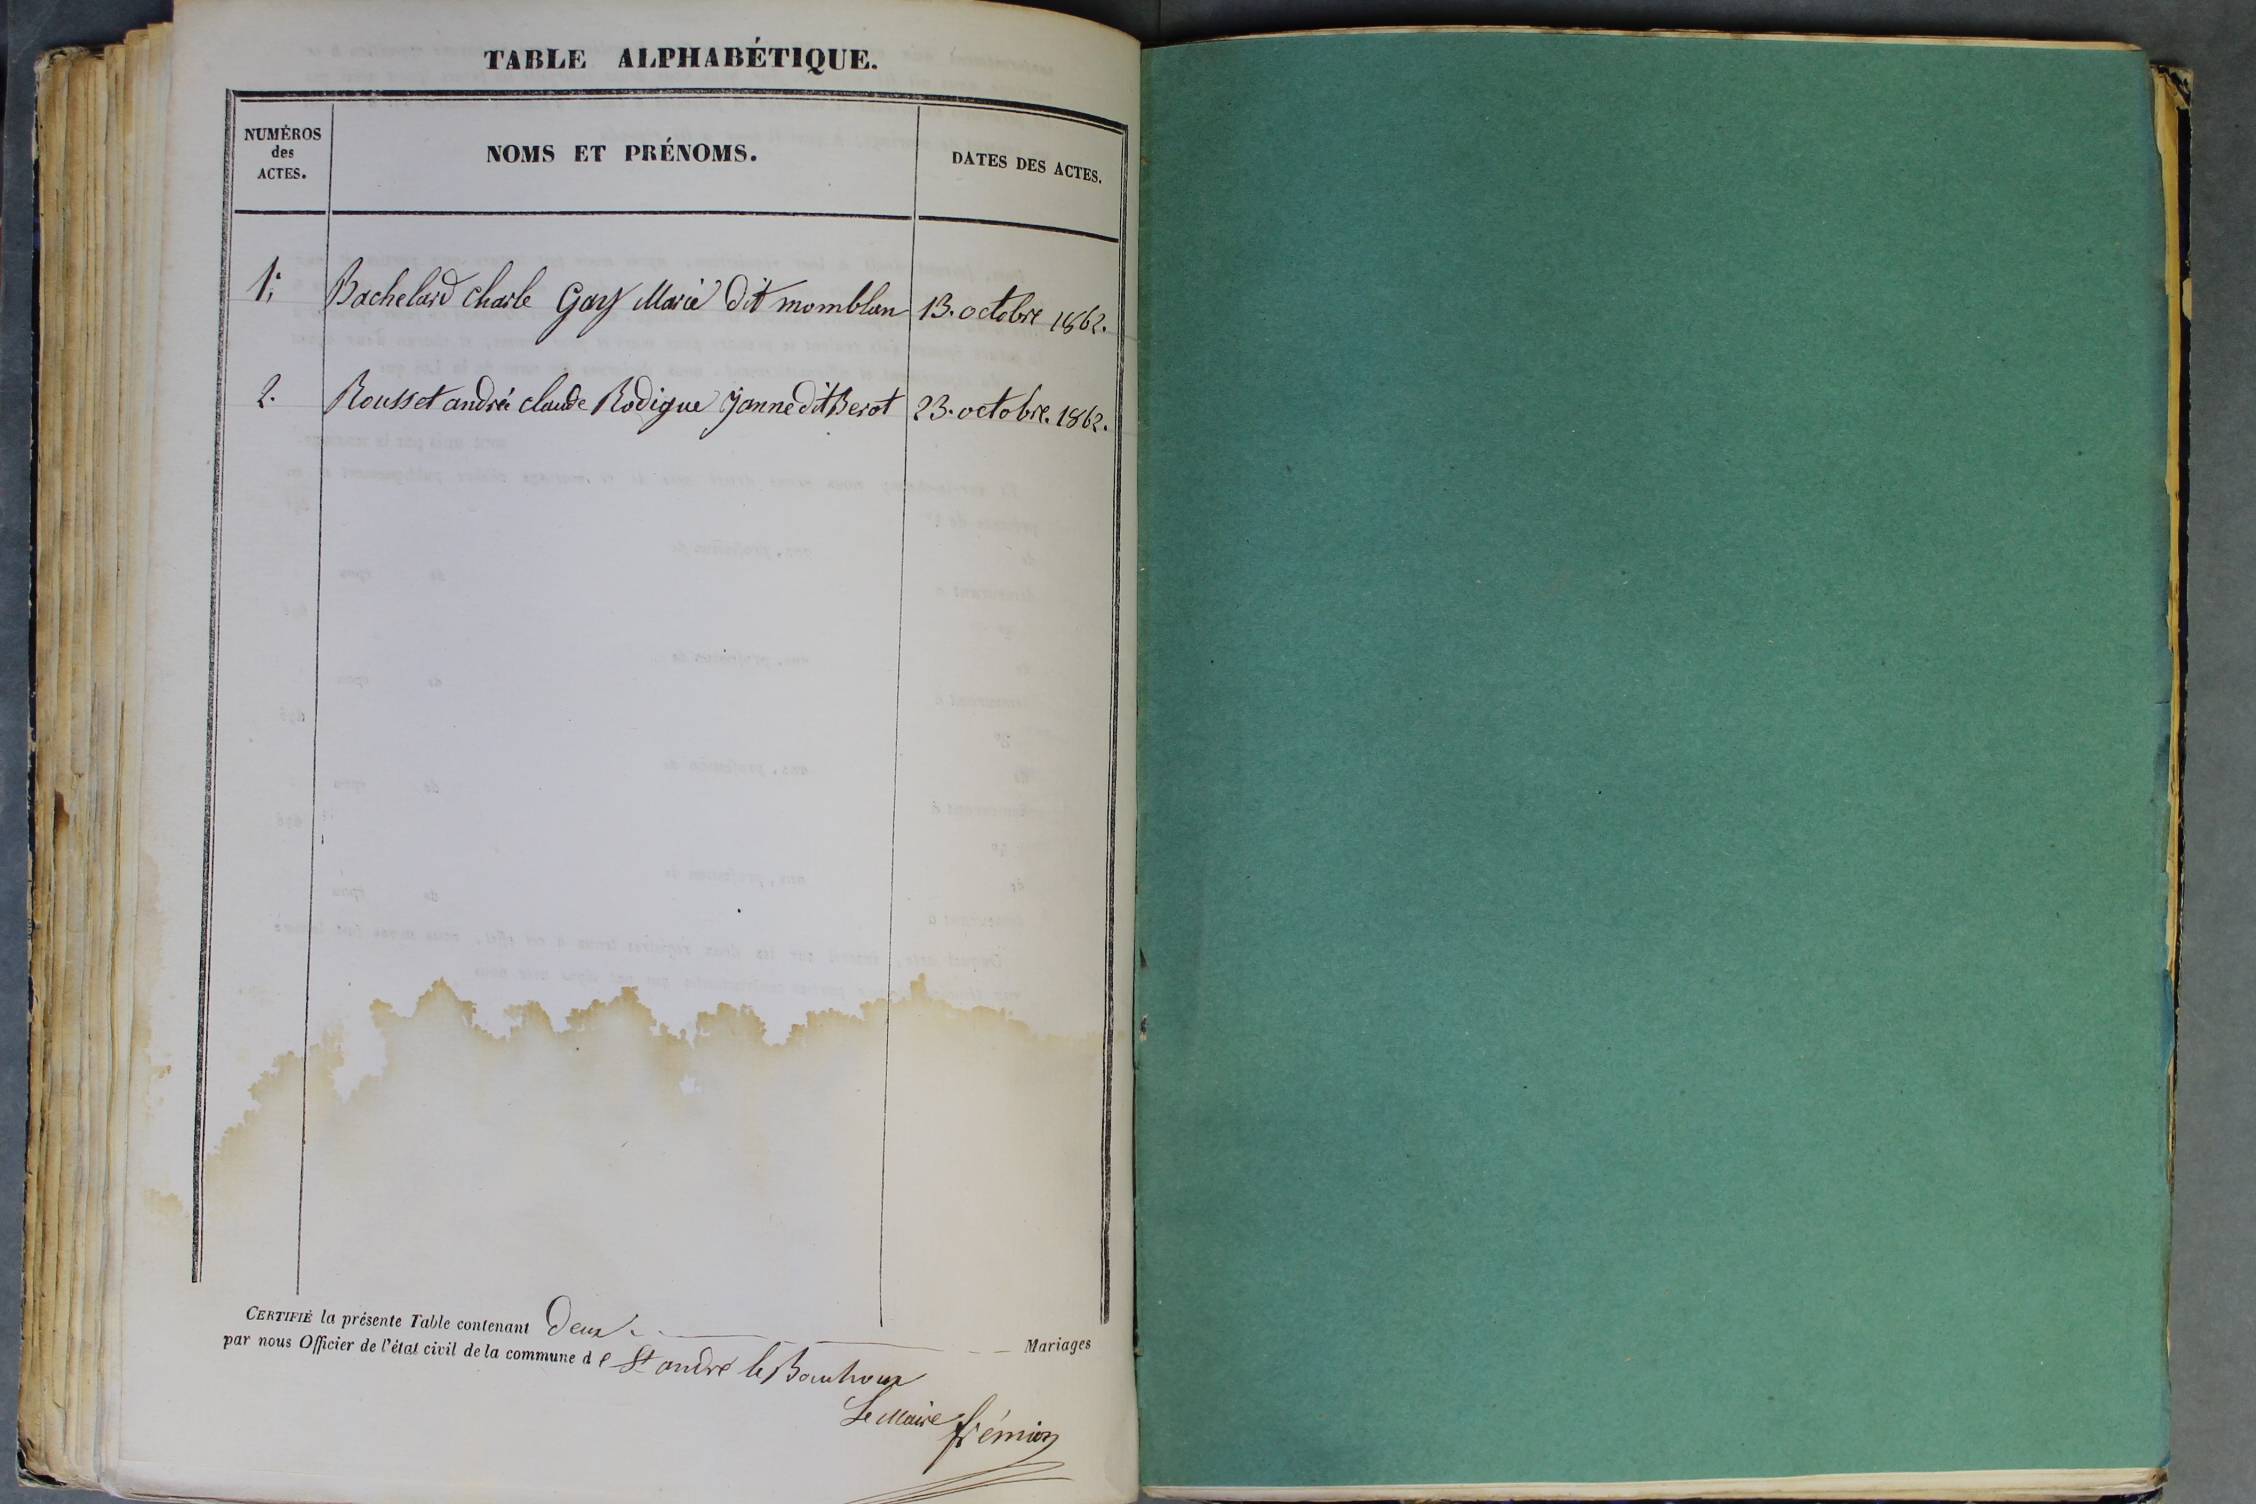 TABLE ALPHABÉTIQUE.
NUMÉROS
des
ACTES.
NOMS ET PRÉNOMS.
DATES DES ACTES.
1. Bachelard Charle Gay Marie dit momblan 13. octobre 1862.
2. Rousset andré claude Rodigue Janne dit Berot 23. octobre. 1862.
CERTIFIÉ la présente Table contenant Deux Mariages
par nous Officier de l'état civil de la commune de St andré le
Le Maire frémion